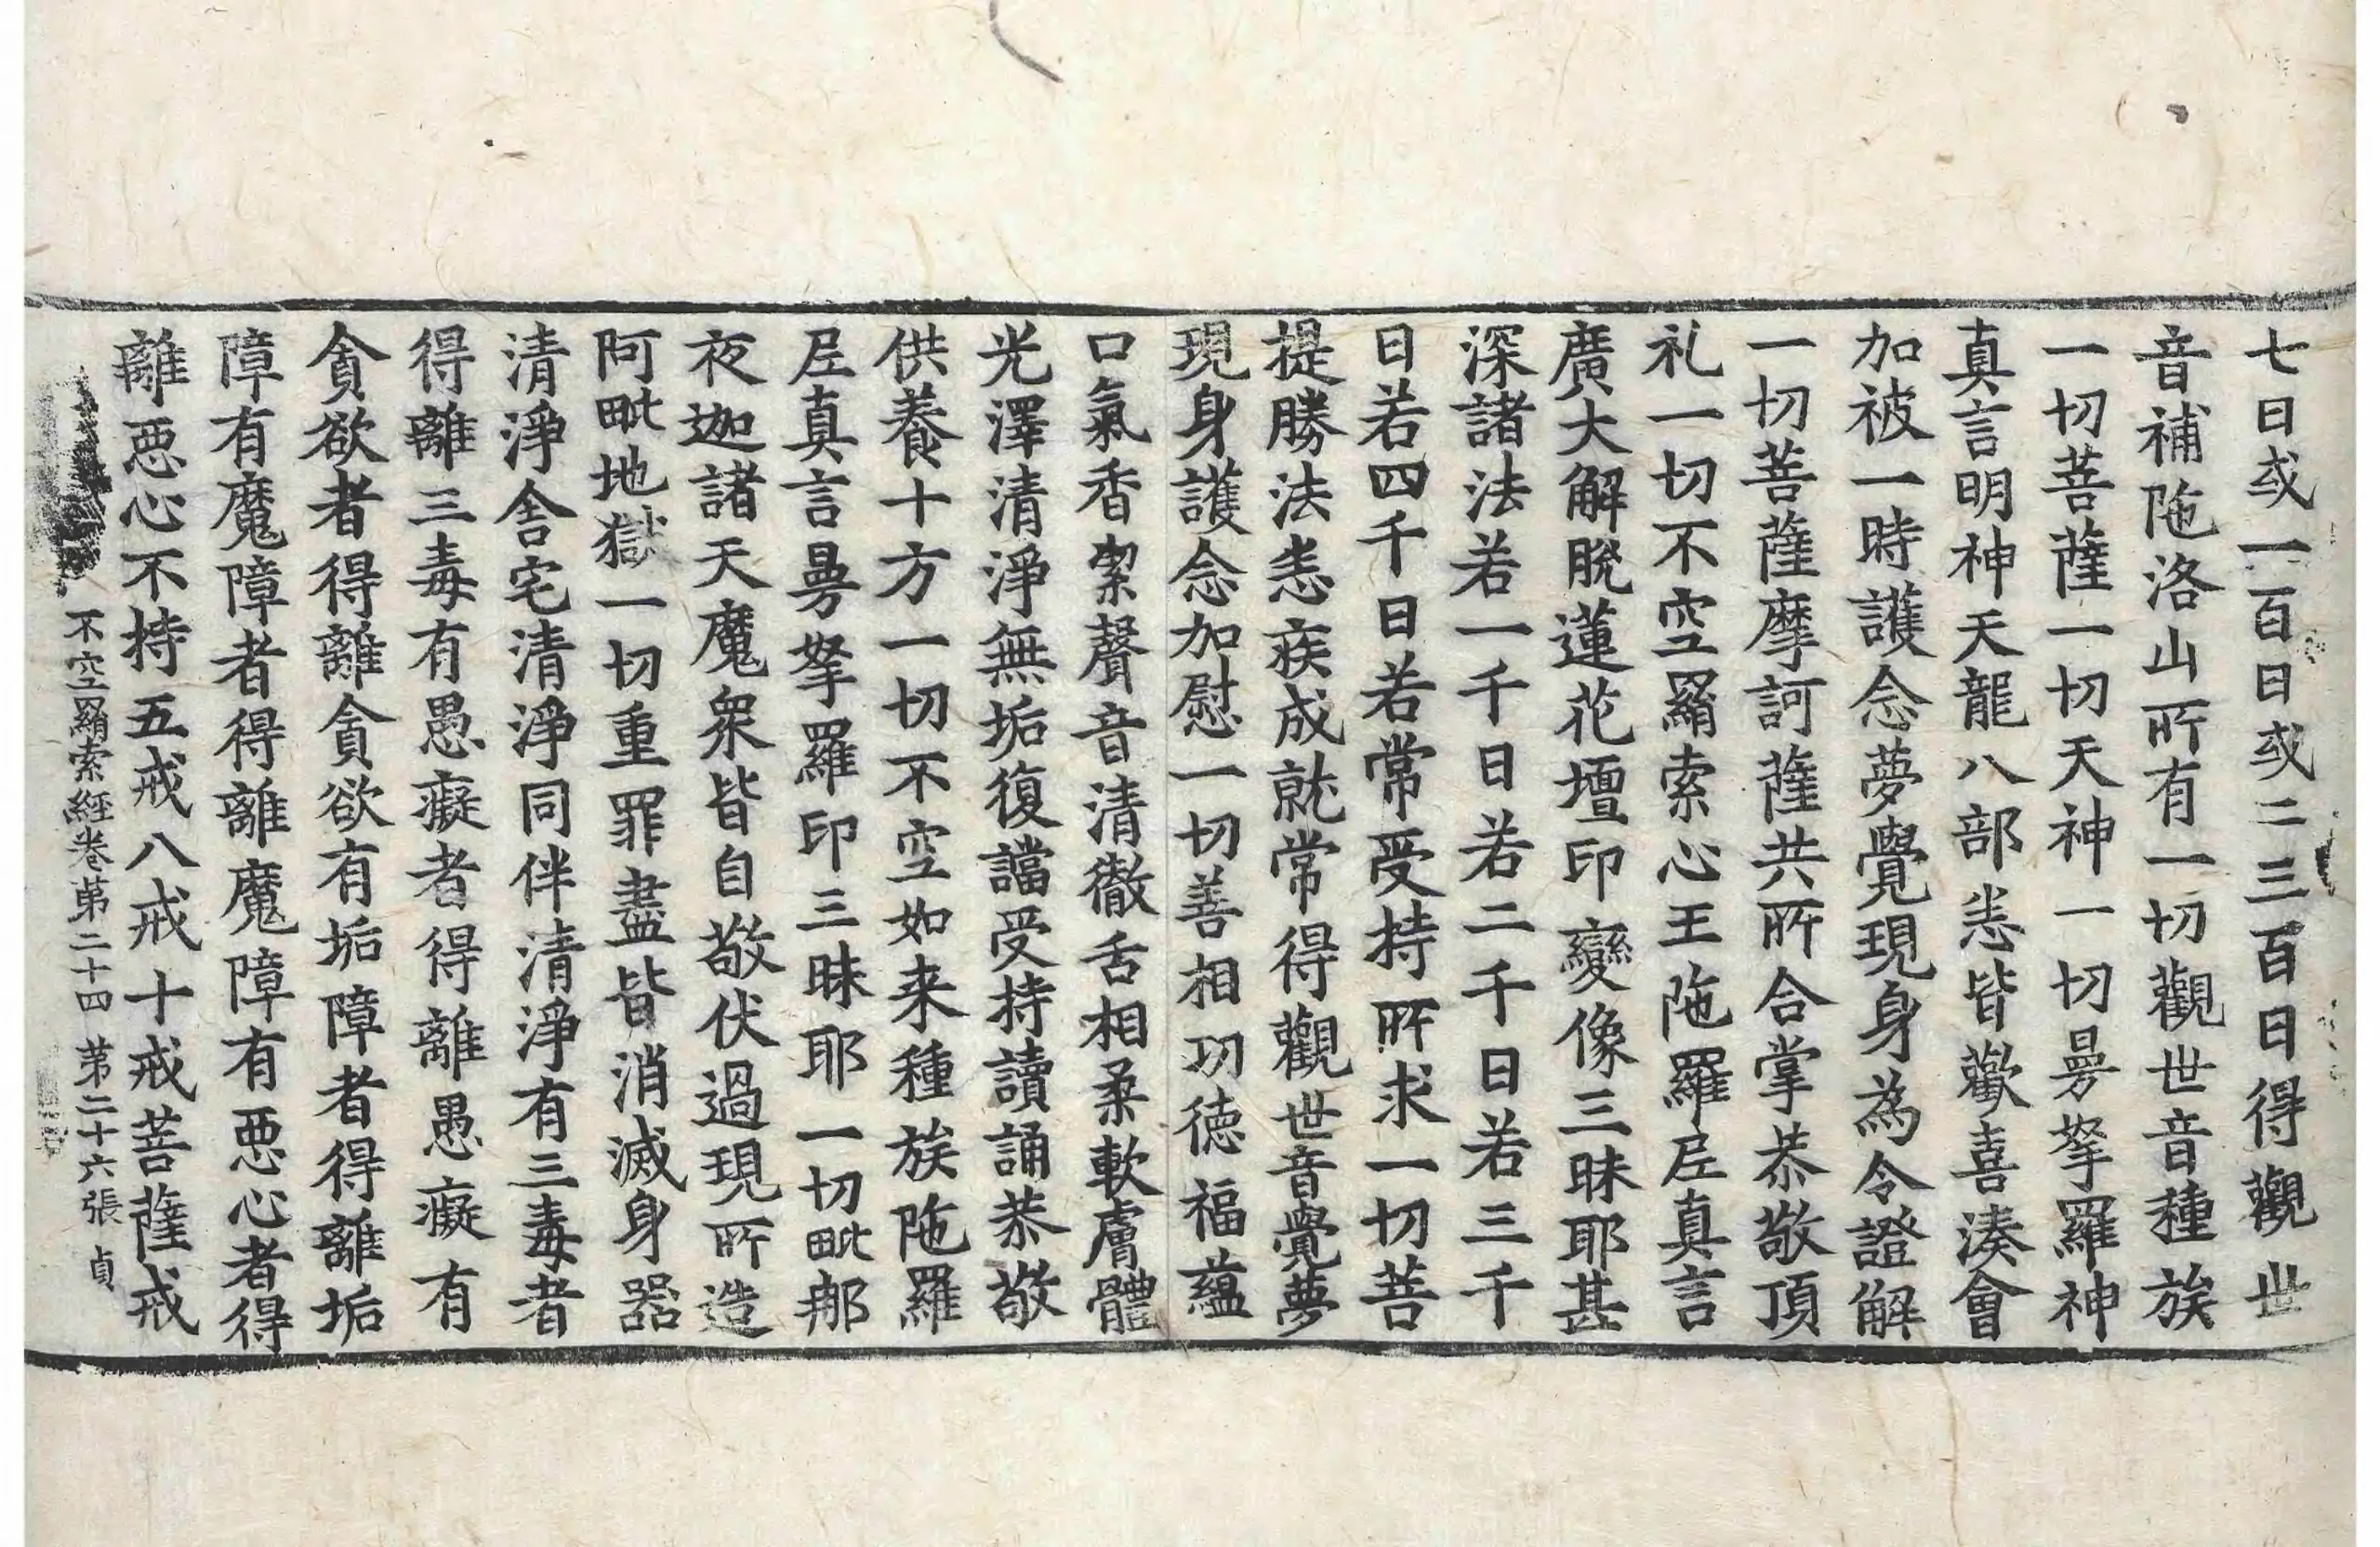 七日或一百日或二三百日得觀世
音補陁洛山所有一切觀世音種族
一切菩薩一切天神一切曼拏羅神
真言明神天龍八部恙皆歡喜湊會
加被一時護念夢覺現身為令證解
一切菩薩摩訶薩共所合掌恭敬頂
礼一切不空羂索心王陁羅𡰱真言
廣大解脫蓮花壇印變像三昧耶甚
深諸法若一千日若二千日若三千
日若四千日若常受持所求一切菩
提勝法恙疾成就常得觀世音覺夢
現身護念加慰一切善相功徳福蘊
口氣香絜聲音清徹舌相柔軟膚體
光澤清淨無垢復讜受持讀誦恭敬
供養十方一切不空如来種族陁羅
𡰱真言曼拏羅印三昧耶一切毗那
夜迦諸天魔衆皆自敬伏過現所造
阿毗地獄一切重罪盡皆消滅身器
清淨舍宅清淨同伴清淨有三毒者
得離三毒有愚癡者得離愚癡有
貪欲者得離貪欲有垢障者得離垢
障有魔障者得離魔障有惡心者得
離惡心不持五戒八戒十戒菩薩戒
不空羂索經卷第二十四 第二十六張 貞